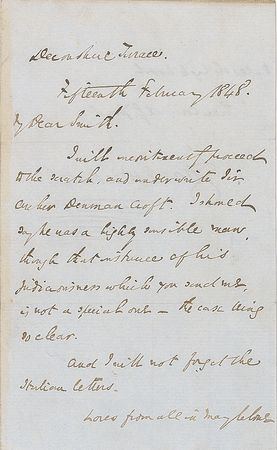 Devonshire Terrace.
Fifteenth February 1848.
My Dear Smith.
I will incontinently proceed
to the scratch, and underwrite
Denman Croft. I should
say he was a highly sensible man,
though that instance of his
judiciousness which you send me,
is not a special one — the case being
so clear.
And I will not forget the
Italian letters.
Loves from all in Marylebone